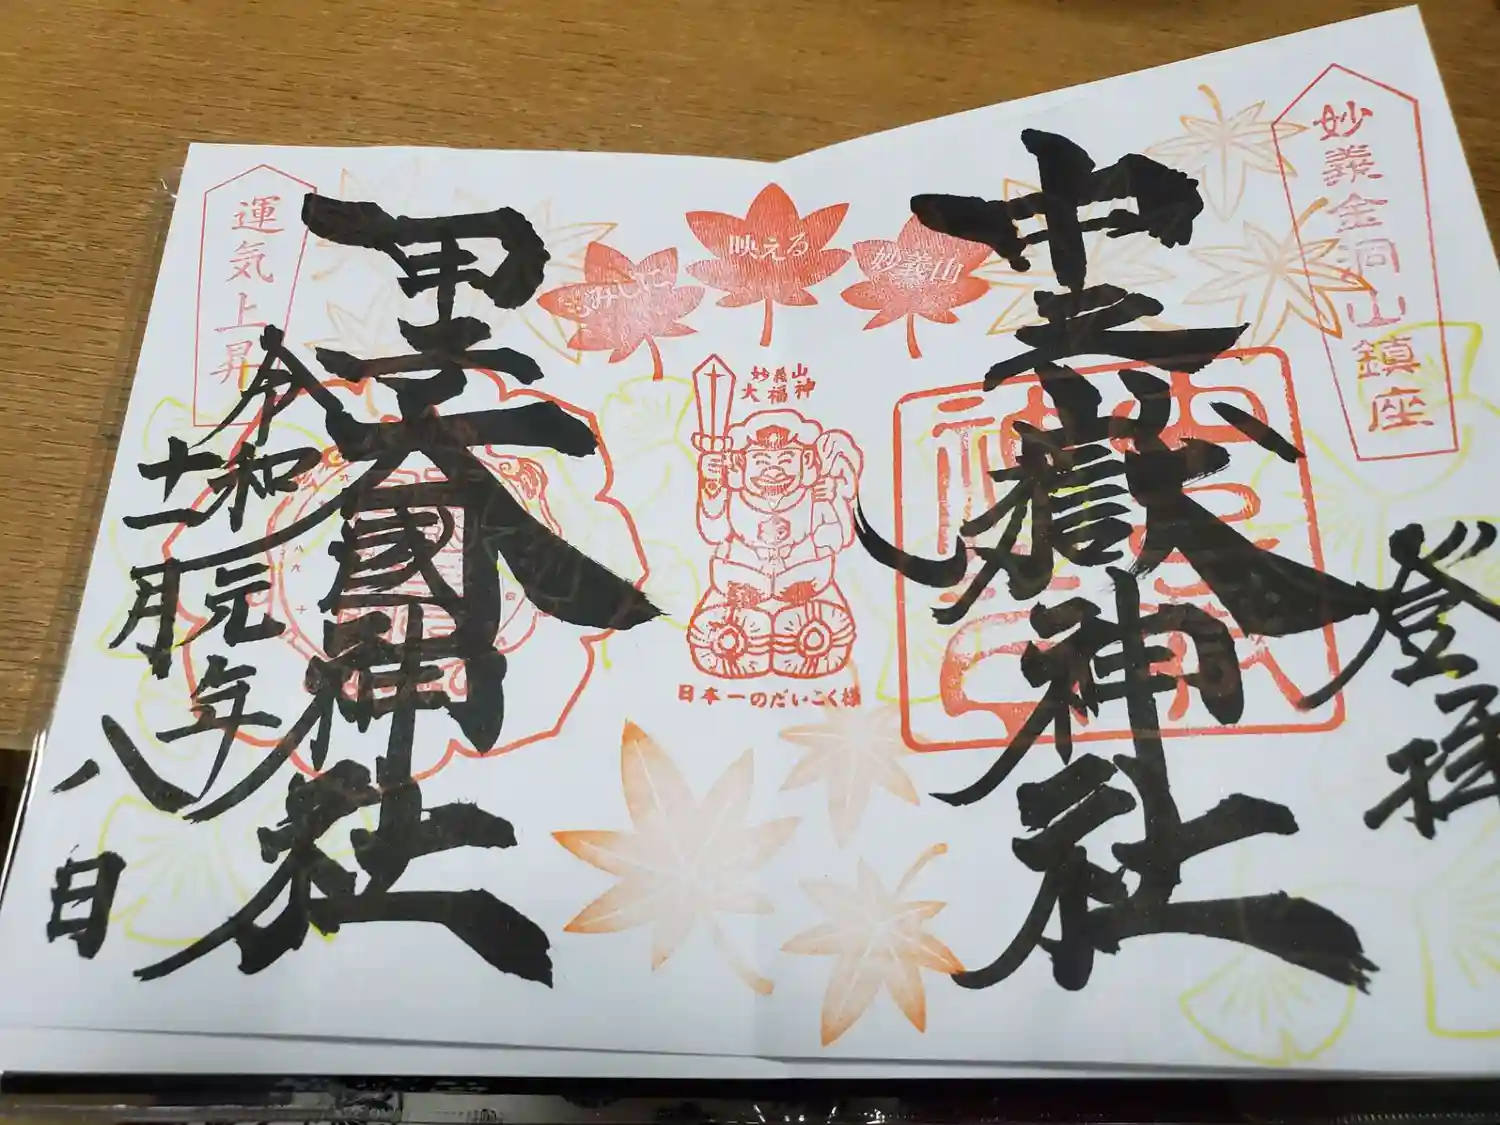 妙義金洞山鎮座
登拝
中之嶽神社
妙義山
映える
もみじに
妙義山
大福神
日本一のだいこく様
甲子大國神社
運気上昇
令和元年
十一月
八日